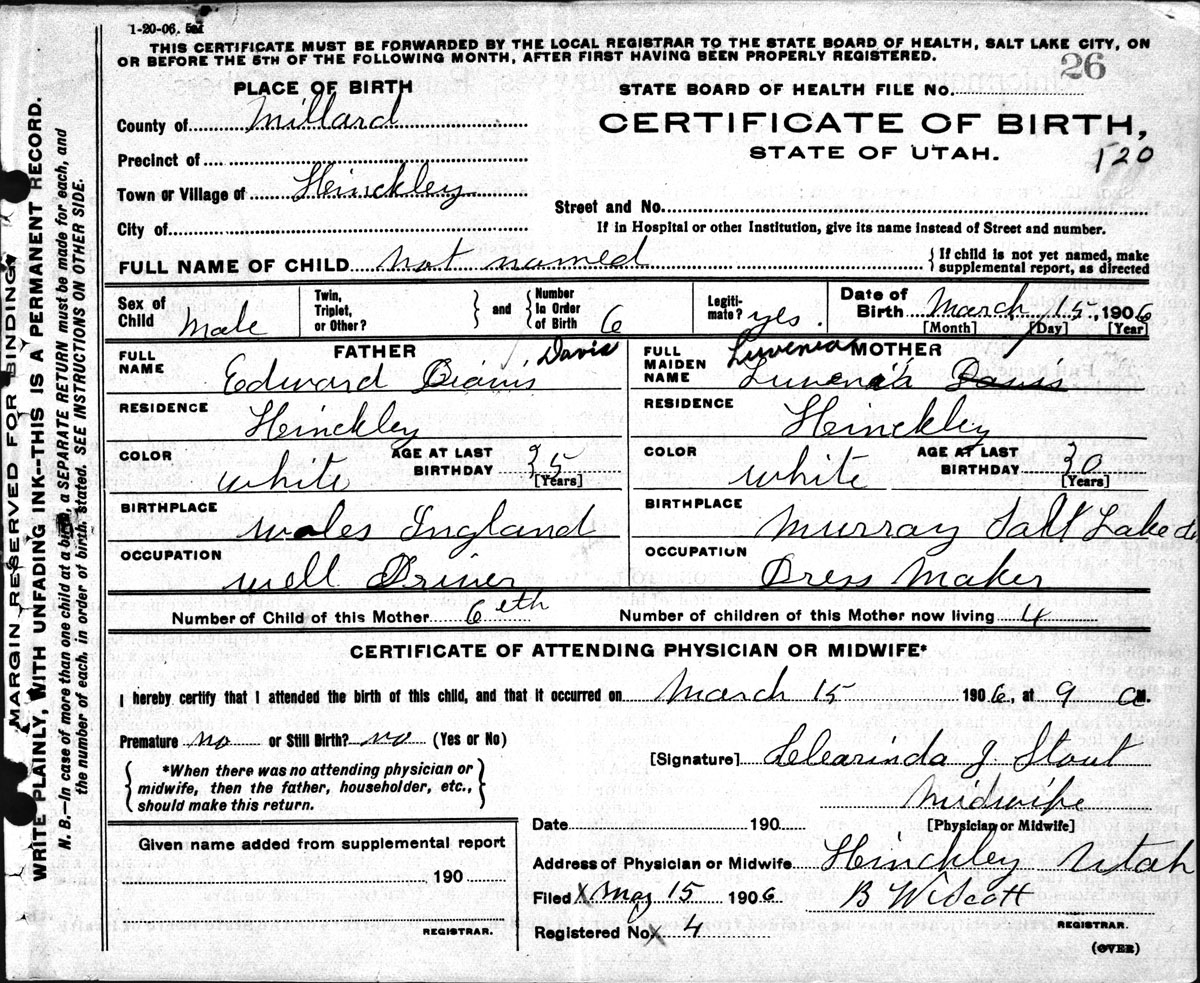 1-20-06.
THIS CERTIFICATE MUST BE FORWARDED BY THE LOCAL REGISTRAR TO THE STATE BOARD OF HEALTH, SALT LAKE CITY, ON
OR BEFORE THE 5TH OF THE FOLLOWING MONTH, AFTER FIRST HAVING BEEN PROPERLY REGISTERED.
26
PLACE OF BIRTH
STATE BOARD OF HEALTH FILE NO.
County of Millard
CERTIFICATE OF BIRTH,
STATE OF UTAH.
120
Precinct of
Town or Village of Heinckley
Street and No.
City of
If in Hospital or other Institution, give its name instead of Street and number.
FULL NAME OF CHILD not named
{If child is not yet named, make
supplemental report, as directed
Sex of Child Male
Twin, Triplet, or Other?
and
Number In Order of Birth 6
Legiti- mate? yes.
Date of Birth March 15, 1906
[Month] [Day] [Year]
FATHER
FULL NAME Edward Davis
Davis
RESIDENCE Heinckley
COLOR white
AGE AT LAST BIRTHDAY 35
[Years]
BIRTHPLACE Wales Ingland
OCCUPATION well Driver
MOTHER
FULL MAIDEN NAME Luvenia Davis
Luvenia
RESIDENCE Heinckley
COLOR white
AGE AT LAST BIRTHDAY 30
[Years]
BIRTHPLACE Murray Salt Lake
OCCUPATION Dress Maker
Number of Child of this Mother 6eth
Number of children of this Mother now living 4
CERTIFICATE OF ATTENDING PHYSICIAN OR MIDWIFE*
I hereby certify that I attended the birth of this child, and that it occurred on March 15 1906, at 9 a M.
Premature no or Still Birth? no (Yes or No)
[Signature] Clearinda J Stout
{*When there was no attending physician or
midwife, then the father, householder, etc.,
should make this return.}
Midwife
[Physician or Midwife]
Date 190
Given name added from supplemental report
190
REGISTRAR.
Address of Physician or Midwife Heinckley Utah
Filed X May 15 1906
B W Scott
REGISTRAR.
Registered No X 4
(OVER)
MARGIN RESERVED FOR BINDING
WRITE PLAINLY, WITH UNFADING INK--THIS IS A PERMANENT RECORD.
N. B.—In case of more than one child at a birth, a SEPARATE RETURN must be made for each, and
the number of each, in order of birth, stated. SEE INSTRUCTIONS ON OTHER SIDE.